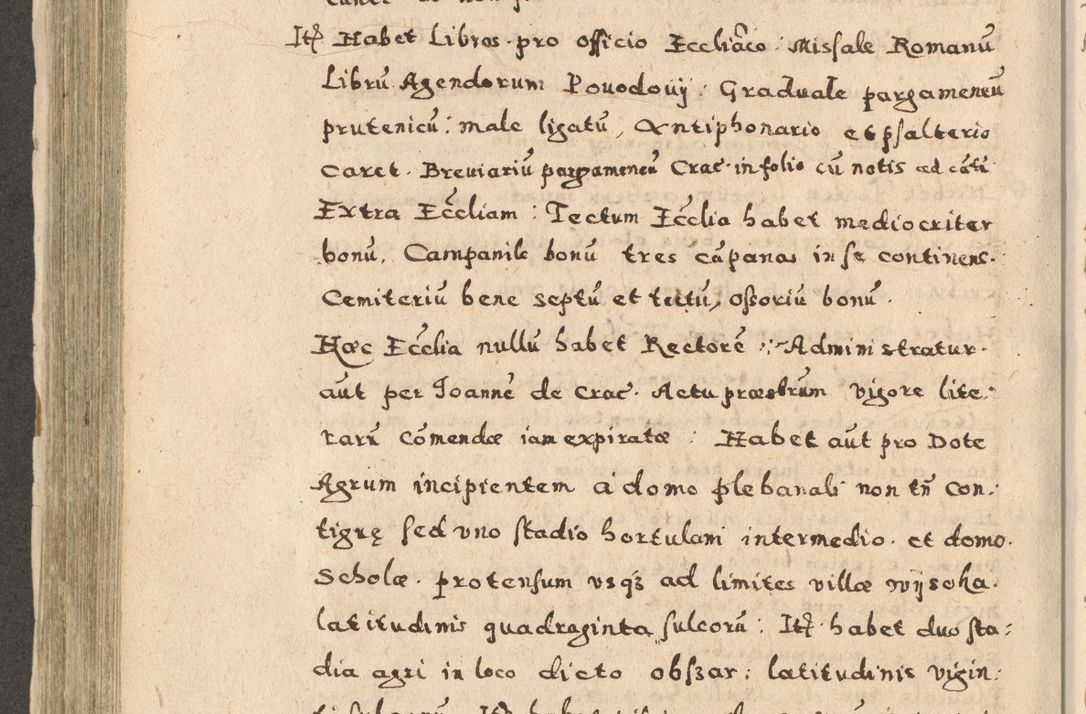 Itẽ Habet Libros pro officio Eccliãco: Missale Romanũ
Librũ Agendorum Pouodouij: Graduale pargameneũ
prutenicũ: male ligatũ, Antiphonario et psalterio
caret. Breuiariũ pargameneũ Crac. in folio cũ notis ad cãtũ
Extra Eccliam: Tectum Ecclia habet mediocriter
bonũ, Campanile bonũ tres cãpanas in se continens.
Cemiteriũ bene septũ et tectũ, ossoriũ bonũ.
Hæc Ecclia nullũ habet Rectorẽ: Administratur
aũt per Joannẽ de Crac. Actu præsbrũm vigore lite-
rarũ Cõmendæ iam expiratæ: Habet aũt pro Dote
Agrum incipientem à domo plebanali non tñ con-
tiguę sed vno stadio hortulani intermedio. et domo
Scholæ. protensum vsq3 ad limites villæ wysoka.
latitudinis quadraginta sulcorũ: Itẽ habet duo sta-
dia agri in loco dicto obszar: latitudinis vigin-